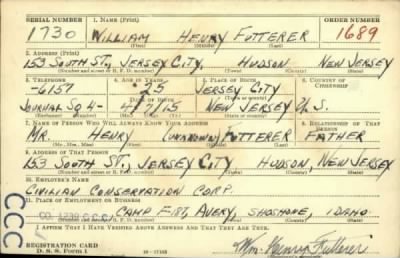 SERIAL NUMBER 1. NAME (Print) ORDER NUMBER
1730 WILLIAM HENRY FUTTERER 1689
(First) (Middle) (Last)
2. ADDRESS (Print)
153 SOUTH ST., JERSEY CITY, HUDSON NEW JERSEY
(Number and street or R. F. D. number) (Town) (County) (State)
3. TELEPHONE 4. AGE IN YEARS 5. PLACE OF BIRTH 6. COUNTRY OF CITIZENSHIP
-6157 25 JERSEY CITY
DATE OF BIRTH (Town or county)
JOURNAL SQ 4- 4/7/15 NEW JERSEY U.S.
7. NAME OF PERSON WHO WILL ALWAYS KNOW YOUR ADDRESS 8. RELATIONSHIP OF THAT PERSON
MR. HENRY (UNKNOWN) FUTTERER FATHER
(Mr., Mrs., Miss) (First) (Middle) (Last)
9. ADDRESS OF THAT PERSON
153 SOUTH ST., JERSEY CITY HUDSON, NEW JERSEY
(Number and street or R. F. D. number) (Town) (County) (State)
10. EMPLOYER'S NAME
CIVILIAN CONSERVATION CORP.
11. PLACE OF EMPLOYMENT OR BUSINESS
CO. 1239 C.C.C. CAMP F-187, AVERY, SHOSHONE, IDAHO.
(Number and street or R. F. D. number) (Town) (County) (State)
I AFFIRM THAT I HAVE VERIFIED ABOVE ANSWERS AND THAT THEY ARE TRUE.
REGISTRATION CARD
D. S. S. Form 1
Wm. Henry Futterer
CCC